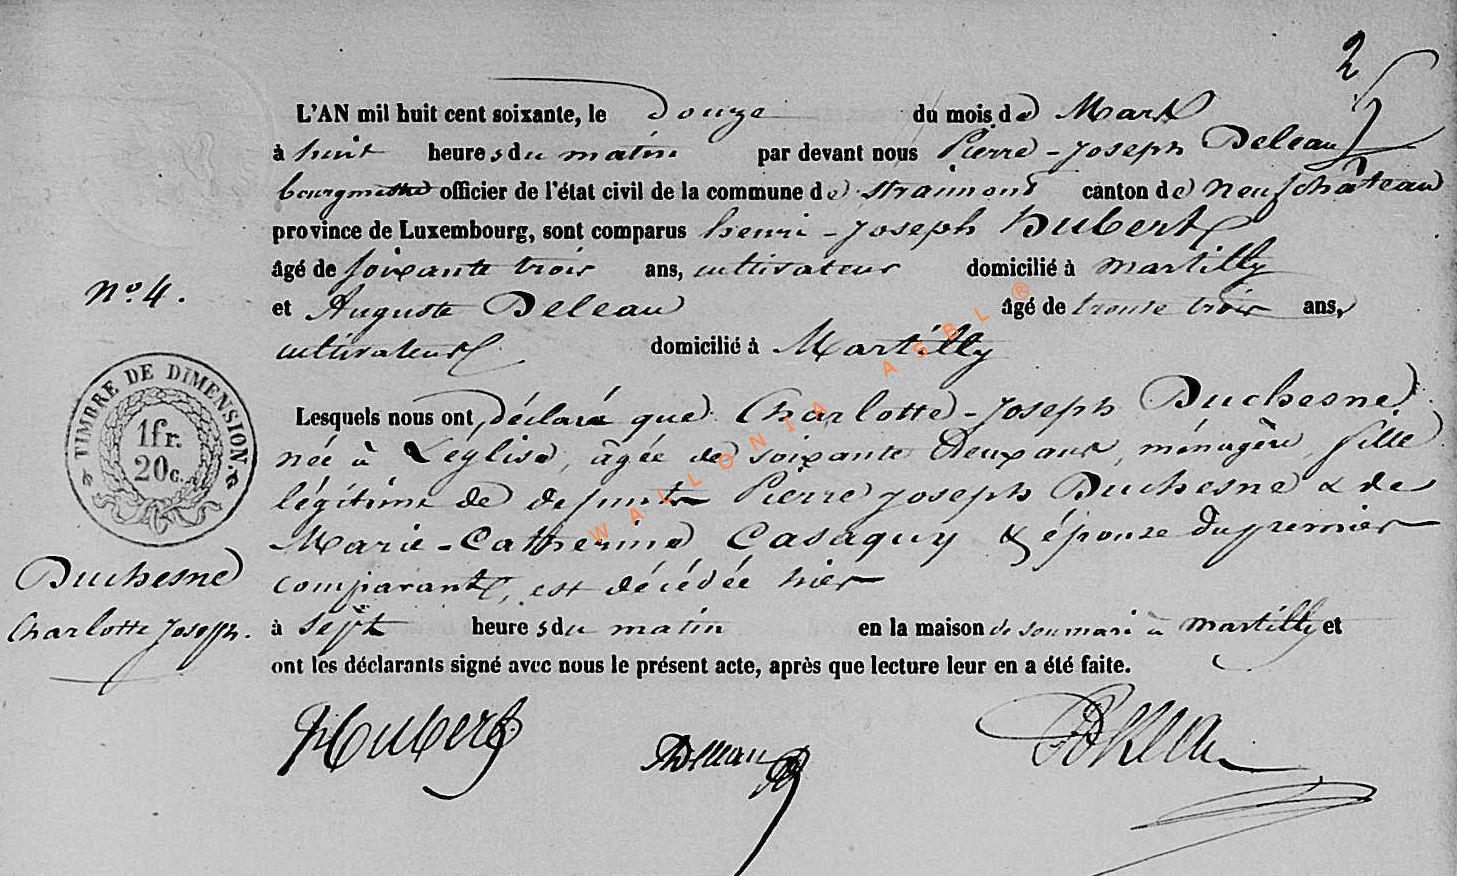 2
L'AN mil huit cent soixante, le Douze du mois de Mars
à huit heures du matin par devant nous Pierre-Joseph Deleau
bourgmestre officier de l'état civil de la commune de Straimont canton de Neufchâteau
province de Luxembourg, sont comparus henri-Joseph Hubert
âgé de soixante trois ans, cultivateur domicilié à Martilly
et Auguste Deleau âgé de trente trois ans,
cultivateur domicilié à Martilly
Lesquels nous ont, déclaré que Charlotte-Joseph Duchesne
née à Léglise, âgée de soixante Deux ans, ménagère, fille
légitime de defunts Pierre Joseph Duchesne & de
Marie-Catherine Casaquy & épouse du premier
comparant, est décédée hier
à Sept heures du matin en la maison de son mari à Martilly et
ont les déclarants signé avec nous le présent acte, après que lecture leur en a été faite.
No 4.
TIMBRE DE DIMENSION.
1 fr.
20 c.
Duchesne
Charlotte Joseph.
Hubert
ADeleau
Deleau
WALLONIA ASBL ®